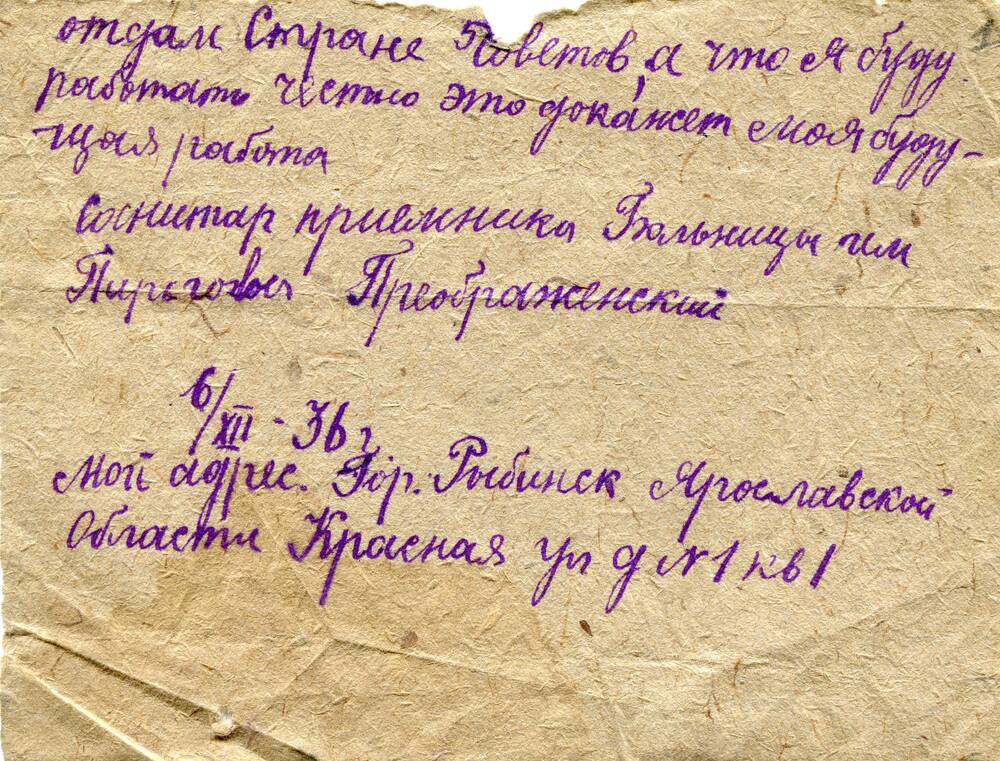 отдам Стране Советов, а что я буду
работать честно это докажет моя буду-
щая работа
Санитар приемника Больницы им
Пирогова Преображенский
6/XII - 36 г
Мой адрес. Гор. Рыбинск Ярославской
Области Красная ул д N 1 кв 1